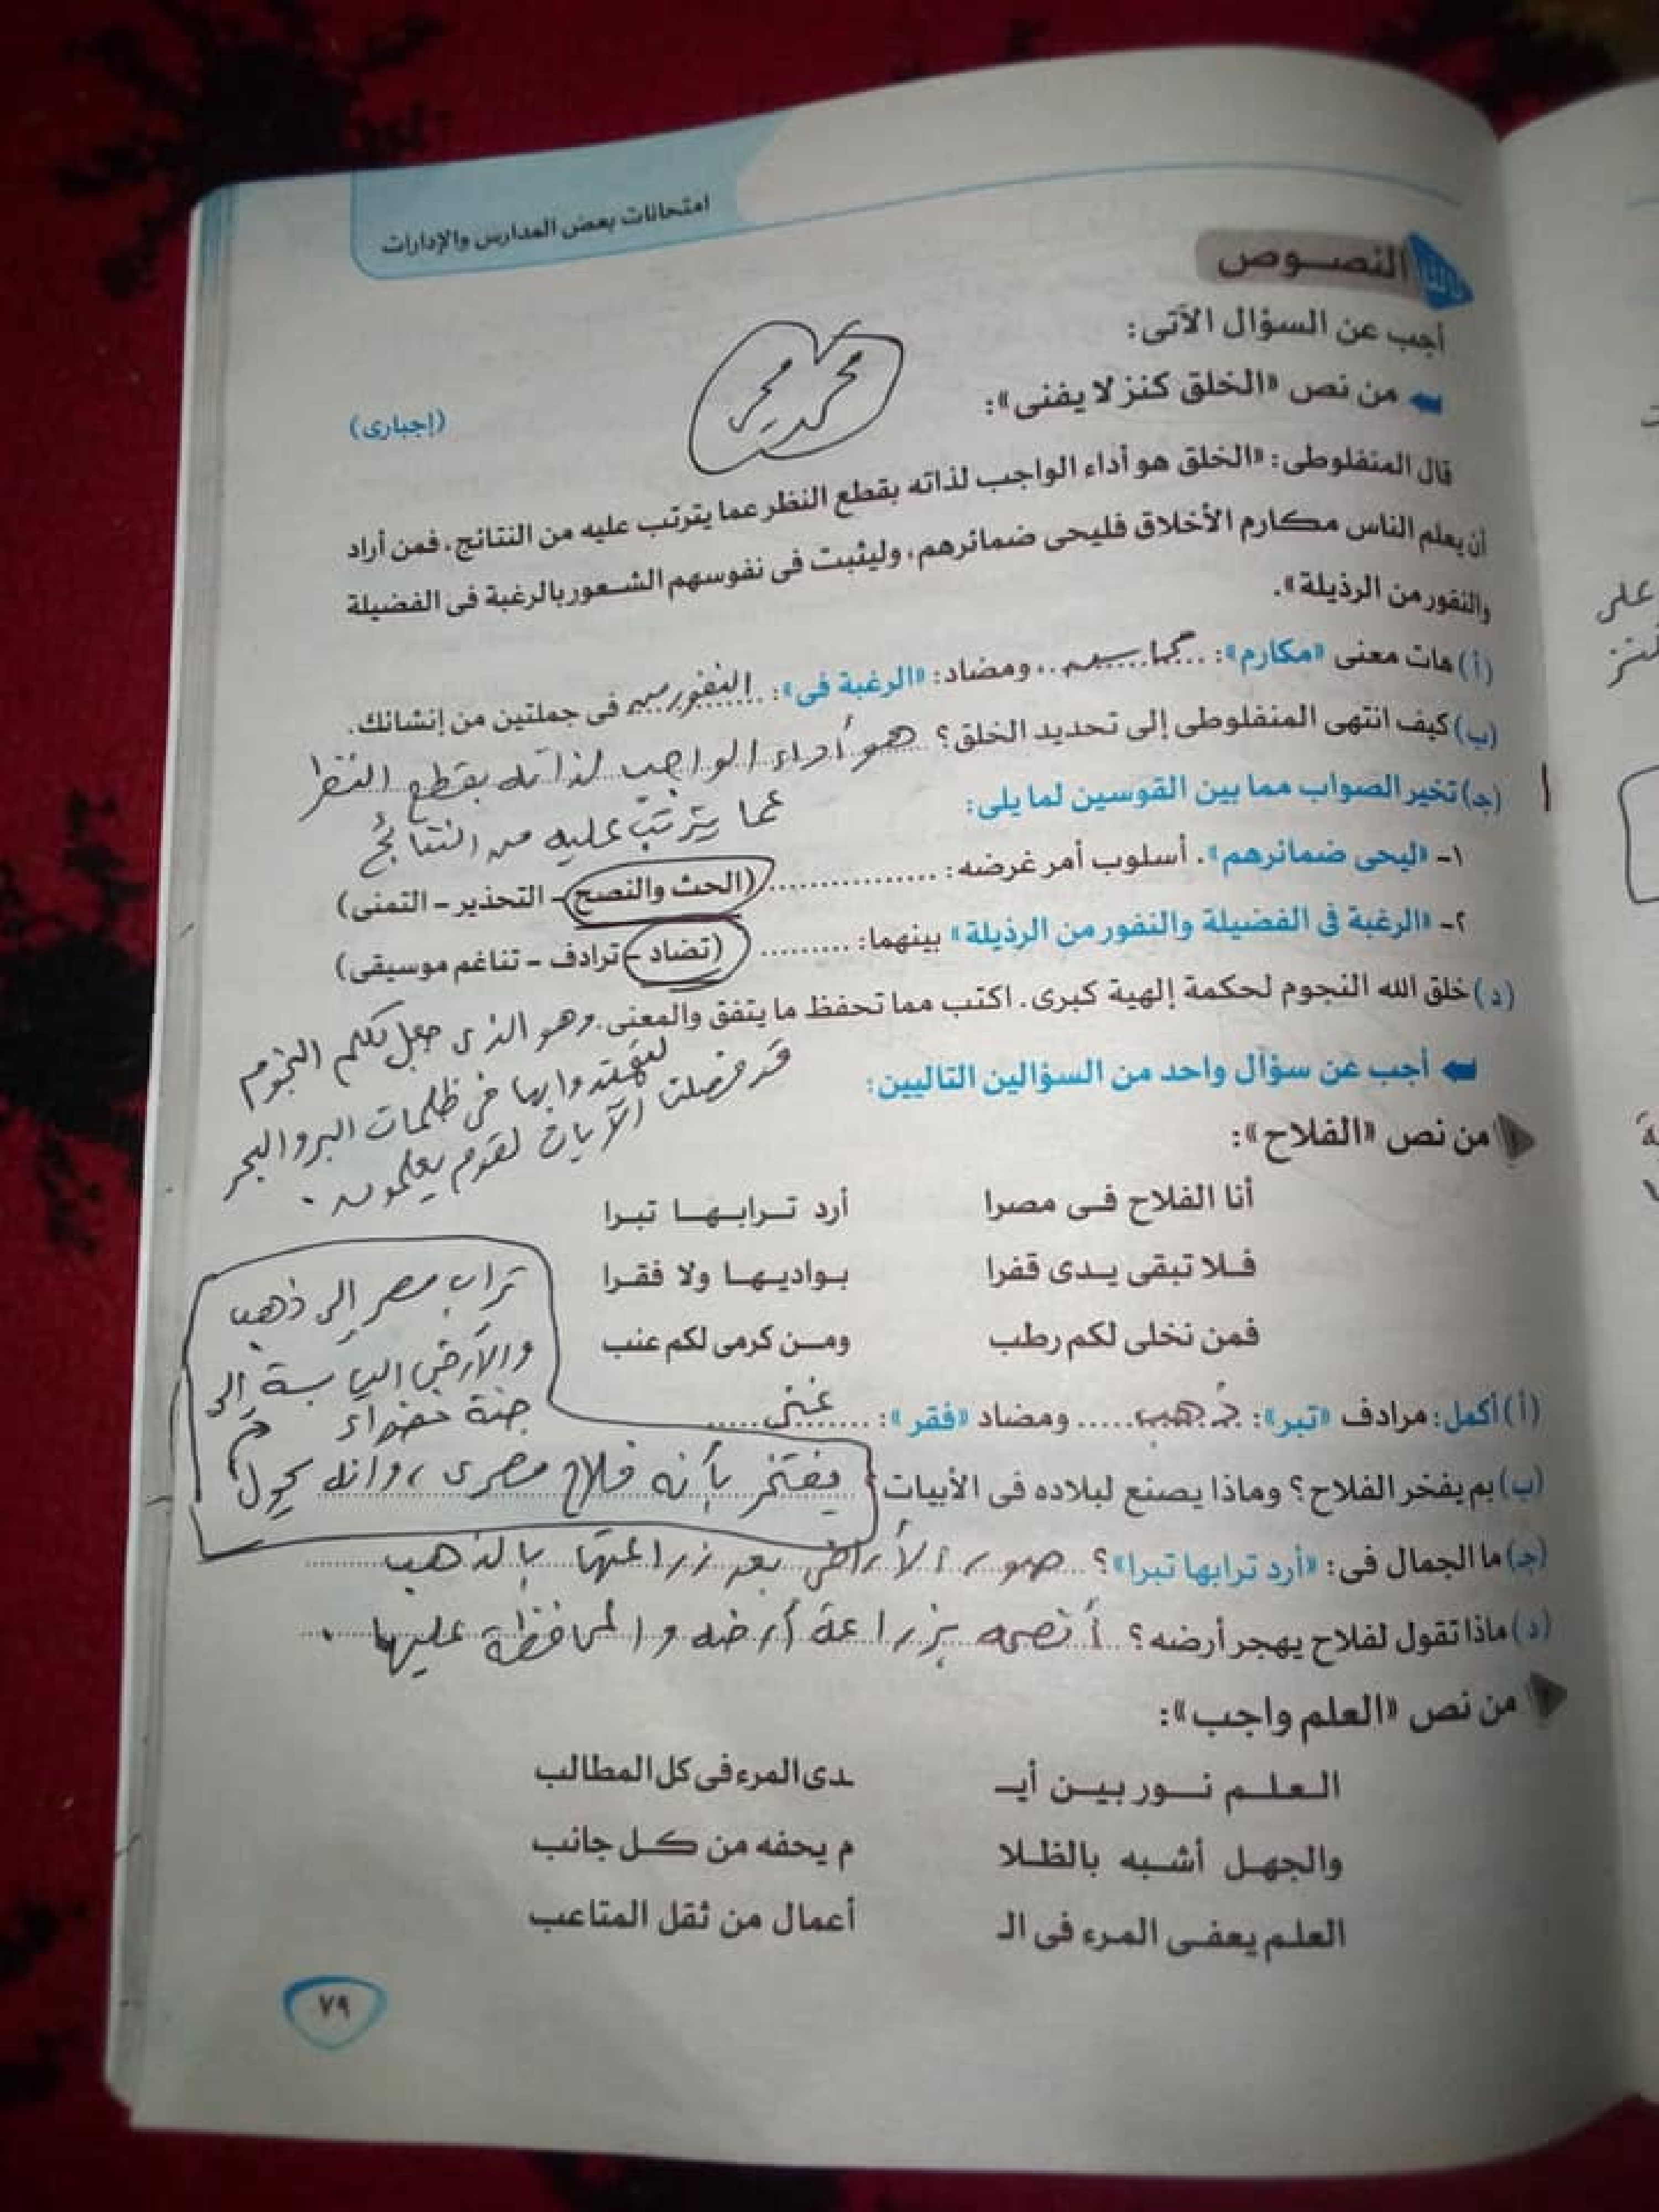 امتحانات بعض المدارس والإدارات
ثالثًا النصوص
أجب عن السؤال الآتى:
من نص «الخلق كنز لا يفنى»:
(إجبارى)
محمد محى
قال المنفلوطى: «الخلق هو أداء الواجب لذاته بقطع النظر عما يترتب عليه من النتائج، فمن أراد
أن يعلم الناس مكارم الأخلاق فليحى ضمائرهم، وليثبت فى نفوسهم الشعور بالرغبة فى الفضيلة
والنفور من الرذيلة».
(أ) هات معنى «مكارم»: محاسن ومضاد: «الرغبة فى»: النفور من فى جملتين من إنشائك.
(ب) كيف انتهى المنفلوطى إلى تحديد الخلق؟ هو أداء الواجب لذاته بقطع النظر
عما يترتب عليه من النتائج
(جـ) تخير الصواب مما بين القوسين لما يلى:
١- «ليحى ضمائرهم». أسلوب أمر غرضه: ................ (الحث والنصح – التحذير – التمنى)
٢- «الرغبة فى الفضيلة والنفور من الرذيلة» بينهما: ......... (تضاد – ترادف – تناغم موسيقى)
(د) خلق الله النجوم لحكمة إلهية كبرى. اكتب مما تحفظ ما يتفق والمعنى. وهو الذى جعل لكم النجوم
لتهتدوا بها فى ظلمات البر والبحر
قد فصلنا الآيات لقوم يعلمون.
أجب عن سؤال واحد من السؤالين التاليين:
من نص «الفلاح»:
أنا الفلاح فى مصرا أرد ترابها تبرا
فلا تبقى يدى قفرا بواديها ولا فقرا
فمن نخلى لكم رطب ومن كرمى لكم عنب
(أ) أكمل: مرادف «تبر»: ذهب ..... ومضاد «فقر»: غنى .....
(ب) بم يفخر الفلاح؟ وماذا يصنع لبلاده فى الأبيات؟ يفتخر بأنه فلاح مصرى، وانه يحول
تراب مصر إلى ذهب
والأرض اليابسة إلى
جنة خضراء
(جـ) ما الجمال فى: «أرد ترابها تبرا»؟ صور الأراضى بعد زراعتها بالذهب
(د) ماذا تقول لفلاح يهجر أرضه؟ أنصحه بزراعة أرضه والمحافظة عليها.
من نص «العلم واجب»:
العلم نور بين أيـ ـدى المرء فى كل المطالب
والجهل أشبه بالظلا م يحفه من كل جانب
العلم يعفى المرء فى الـ أعمال من ثقل المتاعب
٧٩